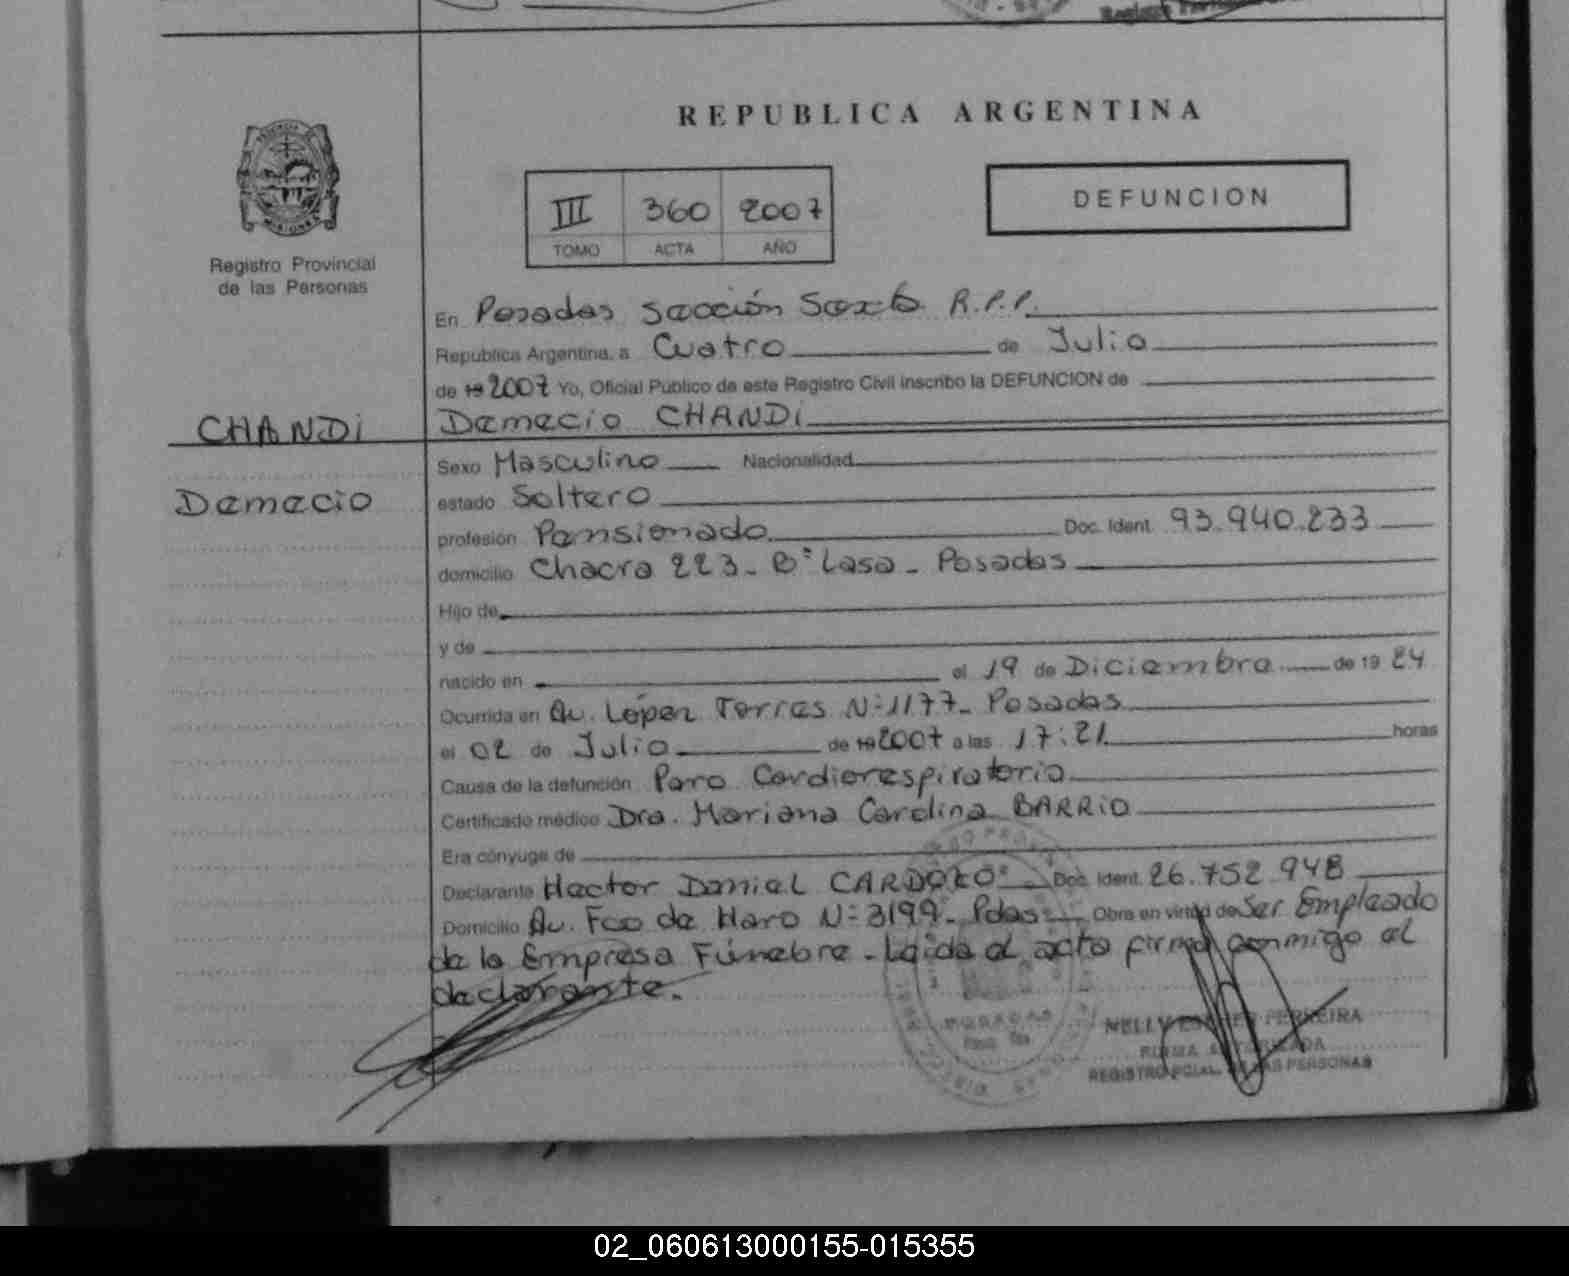 REPUBLICA ARGENTINA
III 360 2007
TOMO ACTA AÑO
DEFUNCION
Registro Provincial
de las Personas
En Posadas sección Sexta R.P.P.
Republica Argentina, a Cuatro de Julio
de 19 2007 Yo, Oficial Público de este Registro Civil inscribo la DEFUNCION de
CHANDi
Demecio CHANDi
Sexo Masculino Nacionalidad
Demecio
estado Soltero
profesión Pensionado Doc. Ident. 93.940.233
domicilio Chacra 223 - B° Lasa - Posadas
Hijo de
y de
nacido en el 19 de Diciembre de 19 24
Ocurrida en Av. López Torres N° 1177 - Posadas
el 02 de Julio de 19 2007 a las 17:21 horas
Causa de la defunción Paro Cardiorespiratorio
Certificado médico Dra. Mariana Carolina BARRiO
Era cónyuge de
Declarante Hector Daniel CARDOZO Doc. Ident. 26.752.948
Domicilio Av. Fco de Haro N° 3199 - Pdas Obra en virtud de Ser Empleado
de la Empresa Fúnebre - Leída el acta firma conmigo el
declarante.
POSADAS
NELLY ESTHER FERREIRA
FIRMA AUTORIZADA
REGISTRO PCIAL. DE LAS PERSONAS
02_060613000155-015355